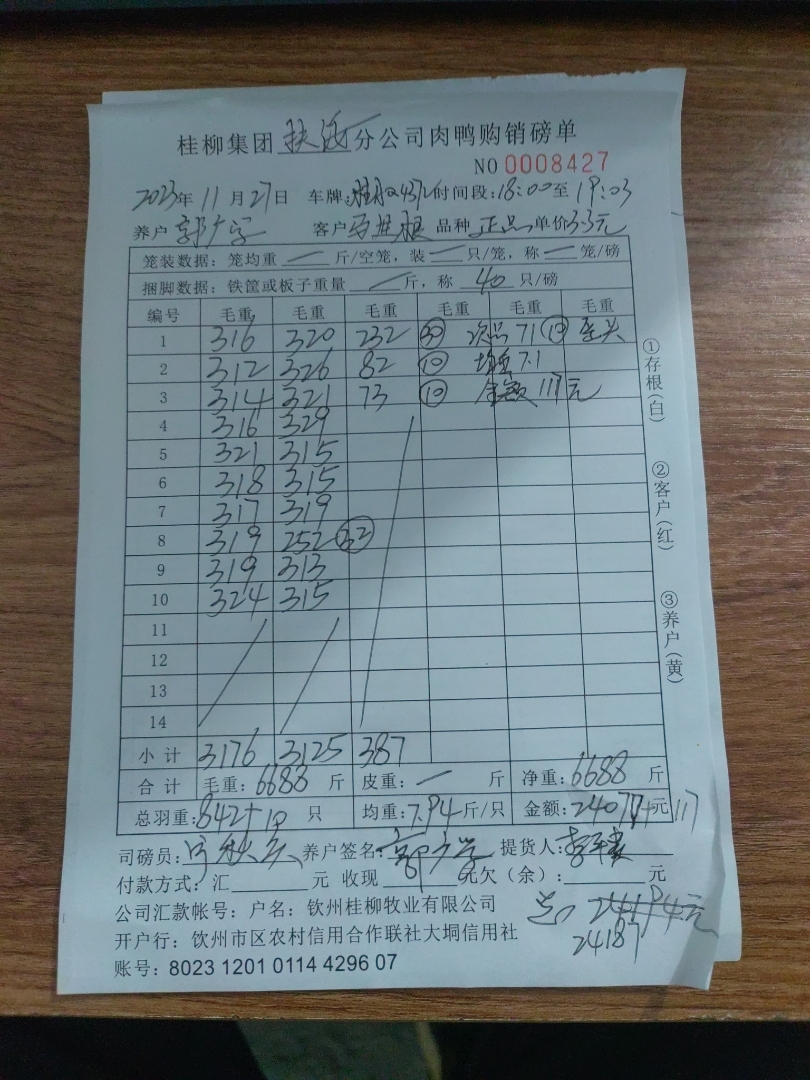 桂柳集团 分公司肉鸭购销磅单
NO 0008427
2023年 11月27日 车牌: 时间段:18:00至19:03
养户 郭广学 客户 品种 正品 单价 元
笼装数据: 笼均重 — 斤/空笼, 装 — 只/笼, 称 — 笼/磅
捆脚数据: 铁筐或板子重量 — 斤, 称 40 只/磅
编号 毛重 毛重 毛重 毛重 毛重 毛重
1 316 320 232 30 次品 71 10
2 312 326 82 10 均重 7.1
3 314 321 73 10 金额 117元
4 316 329
5 321 315
6 318 315
7 317 319
8 319 252 32
9 319 313
10 324 315
11
12
13
14
小计 3176 3125 387
合计 毛重: 6688 斤 皮重: — 斤 净重: 6688 斤
总羽重: 842+10 只 均重: 7.94 斤/只 金额: 元 117
司磅员: 养户签名: 郭广学 提货人:
付款方式: 汇 元 收现 元欠(余): 元
公司汇款帐号: 户名: 钦州桂柳牧业有限公司
开户行: 钦州市区农村信用合作联社大垌信用社
24187
账号: 8023 1201 0114 4296 07
①存根(白)
②客户(红)
③养户(黄)